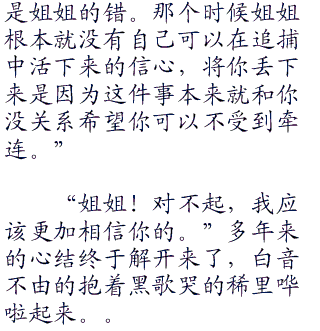 是姐姐的错。那个时候姐姐
根本就没有自己可以在追捕
中活下来的信心，将你丢下
来是因为这件事本来就和你
没关系希望你可以不受到牵
连。”
“姐姐！对不起，我应
该更加相信你的。”多年来
的心结终于解开来了，白音
不由的抱着黑歌哭的稀里哗
啦起来。。